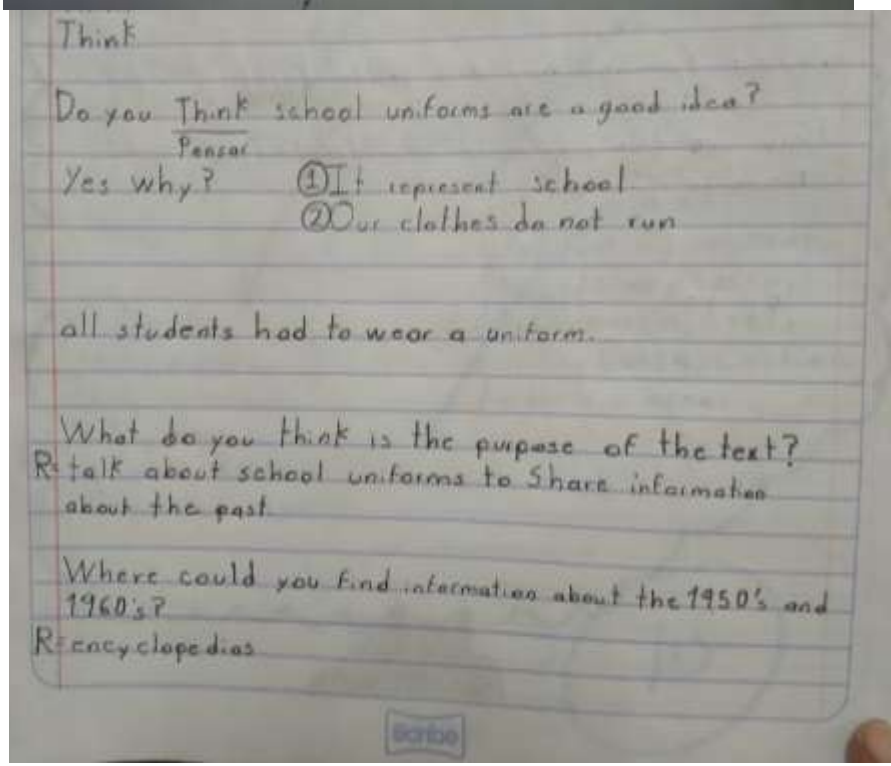 Think
Do you Think school uniforms are a good idea?
Pensar
Yes why? ①It represent school
②Our clothes do not run
all students had to wear a uniform.
What do you think is the purpose of the text?
R= talk about school uniforms to Share information
about the past
Where could you find information about the 1950's and
1960's?
R= encyclopedias
scribe